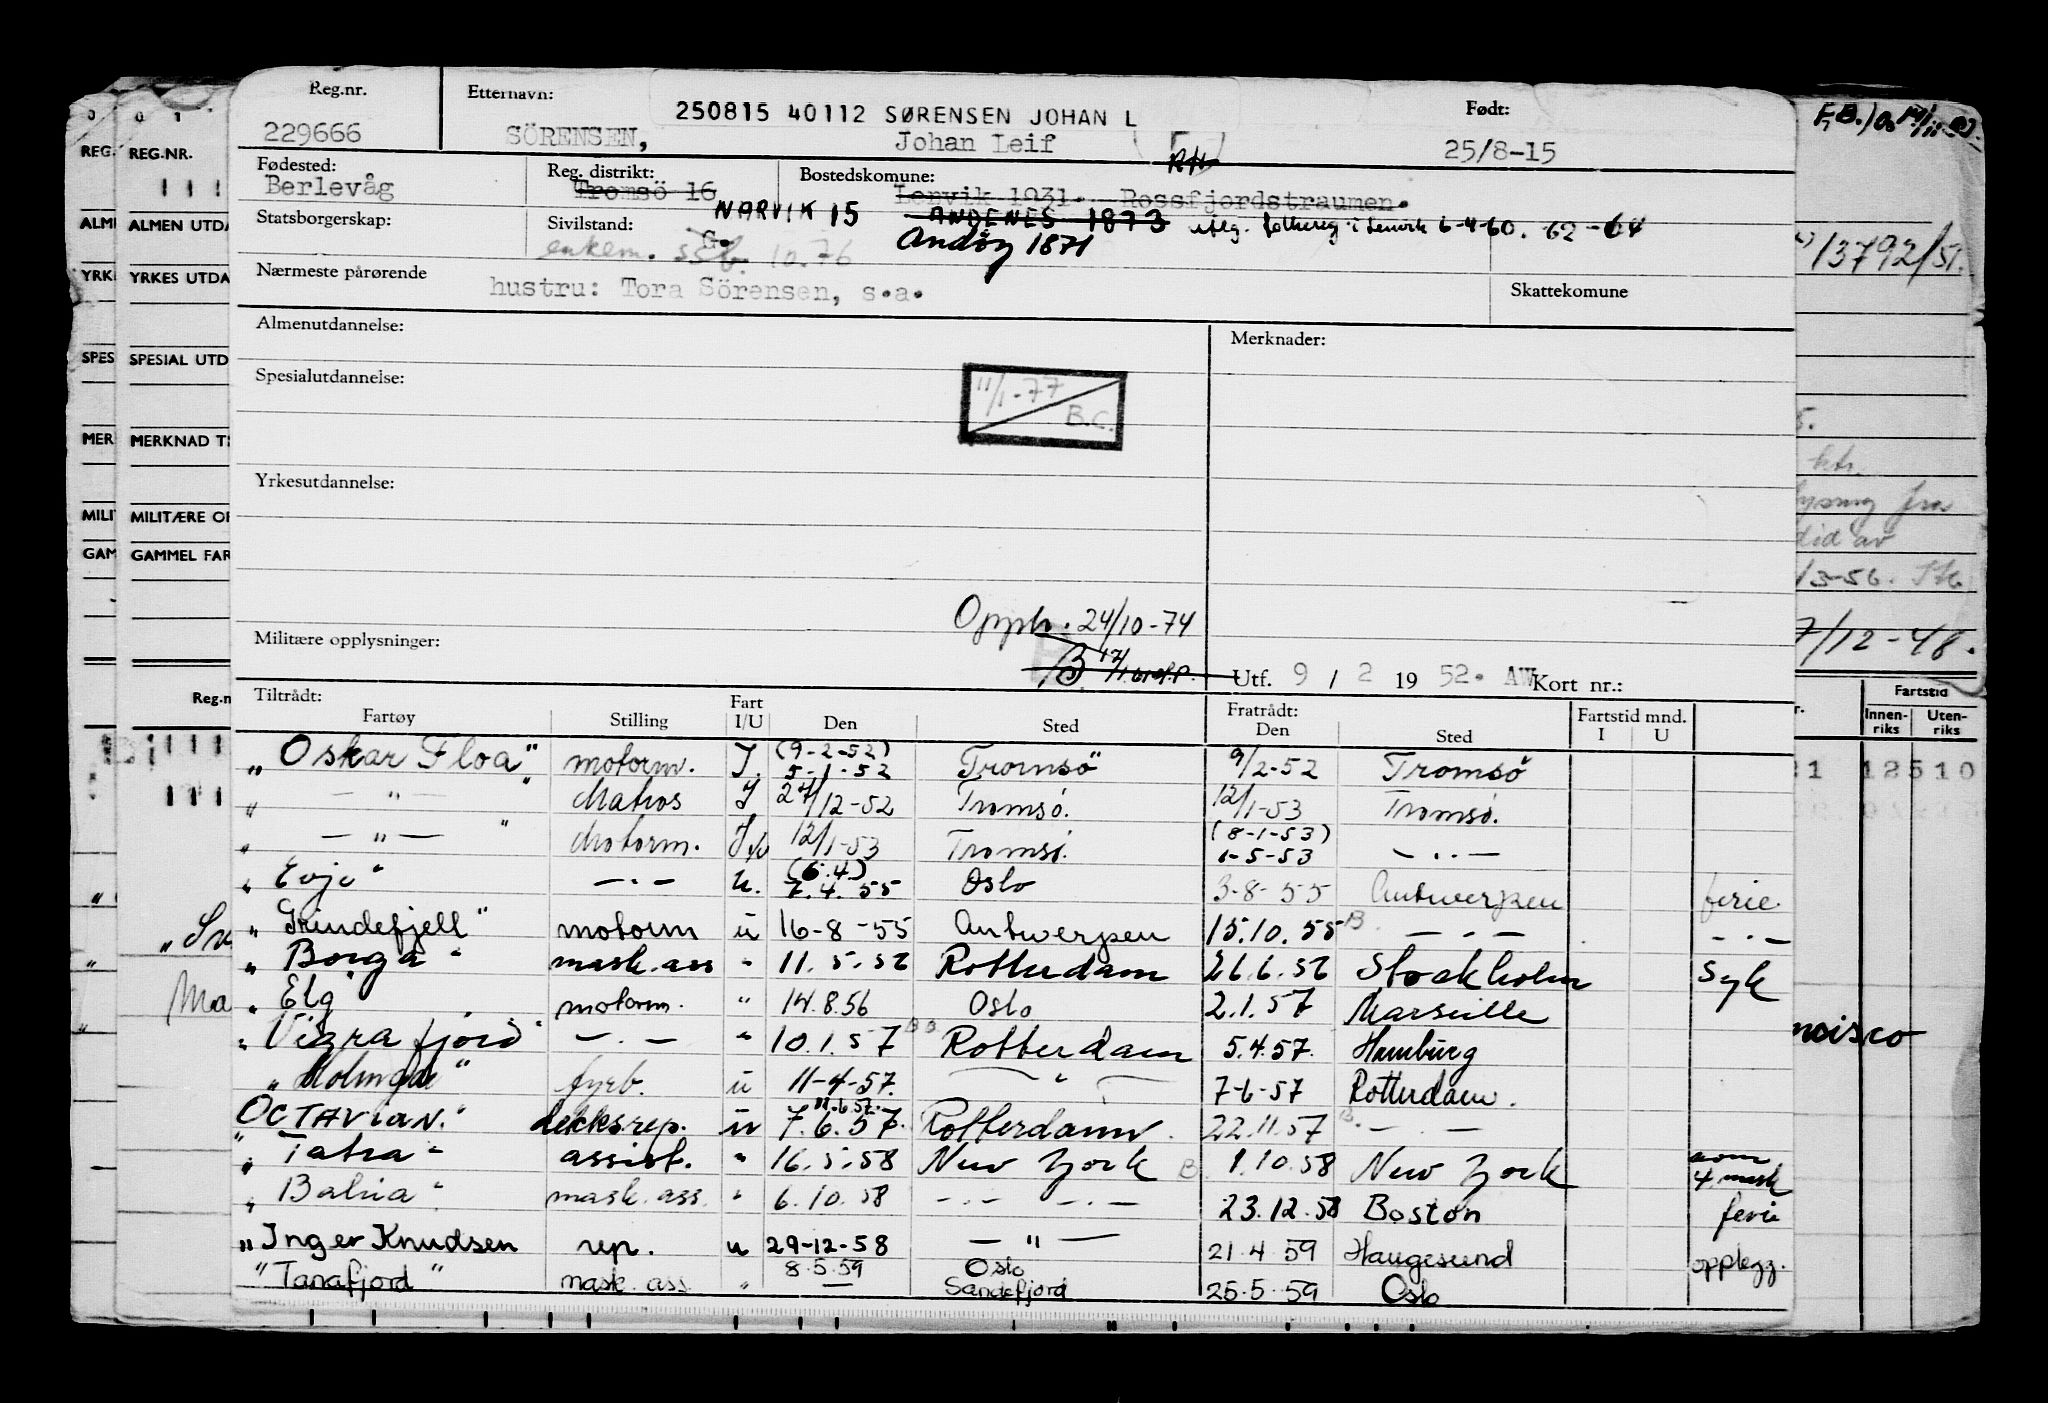 Reg.nr. Etternavn: 250815 40112 SØRENSEN JOHAN L Født:
229666 SÖRENSEN, Johan Leif 25/8-15
Fødested: Reg. distrikt: Bostedskomune:
Berlevåg Tromsö 16 Lenvik 1931. Rossfjordstraumen.
Statsborgerskap: Sivilstand: NARVIK 15 ANDENES 1873 utlg. i Lenvik 6-4-60. 62-64
G. Andøy 1871
enkem. ssb. 10.76
Nærmeste pårørende hustru: Tora Sörensen, s.a. Skattekomune
Almenutdannelse: Merknader:
Spesialutdannelse: 11/1-77 B.C.
Yrkesutdannelse:
Opph. 24/10-74
Militære opplysninger: Utf. 9 / 2 19 52. AW Kort nr.:
Tiltrådt: Fratrådt: Fartstid mnd.
Fartøy Stilling Fart I/U Den Sted Den Sted I U
„Oskar Floa" motorm. I. (9-2-52) 5-1-52 Tromsö 9/2-52 Tromsö
„ — " — " Matros I 27/12-52 Tromsö. 12/1-53 Tromsö.
„ — " — " Motorm. I/U 12/1-53 Tromsö. (8-1-53) 1-5-53 — .. —
„Evje" — . — U. (6.4) 7.4.55 Oslo 3-8-55 Antwerpen ferie
„Grindefjell" motorm u 16-8-55 Antwerpen 15.10.55 B. — . — — . —
„Borga" mask.ass " 11.5.56 Rotterdam 26.6.56 Stockholm Syk
„Elg motorm. " 14.8.56 Oslo 2.1.57 Marseille
„Vigrafjord" — . — " 10.1.57 Rotterdam 5.4.57. Hamburg
„Molnga" fyrb. u 11-4-57. — " — 7-6-57 Rotterdam.
OCTAVIAN." dekksrep. u 11.6.57. 7.6.57. Rotterdam. 22.11.57 B. — . —
„Tatra" assist. " 16.5.58 New York B. 1.10.58 New York som 4 mask
„Bahia" mask.ass. " 6.10.58 — . — — . — 23.12.58 Boston ferie
„Inger Knudsen rep. u 29-12-58 — " — 21.4.59 Haugesund opplegg.
"Tanafjord" mask.ass. " 8.5.59 Oslo
— Sandefjord 25.5.59 Oslo
0 0 1
REG. REG.NR.
ALM ALMEN UTDA
YRK YRKES UTDA
SPES SPESIAL UTD
MER MERKNAD T
MILI MILITÆRE OP
GAM GAMMEL FAR
Reg.n
Ma
13792/51.
ktr.
did av
13-56.
7/12-48.
Fartstid
Innen-riks Uten-riks
21 12510
ncisco